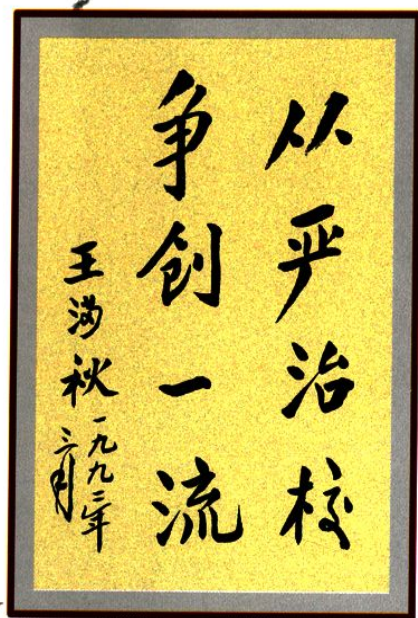 从严治校
争创一流
王满秋
一九九三年
三月